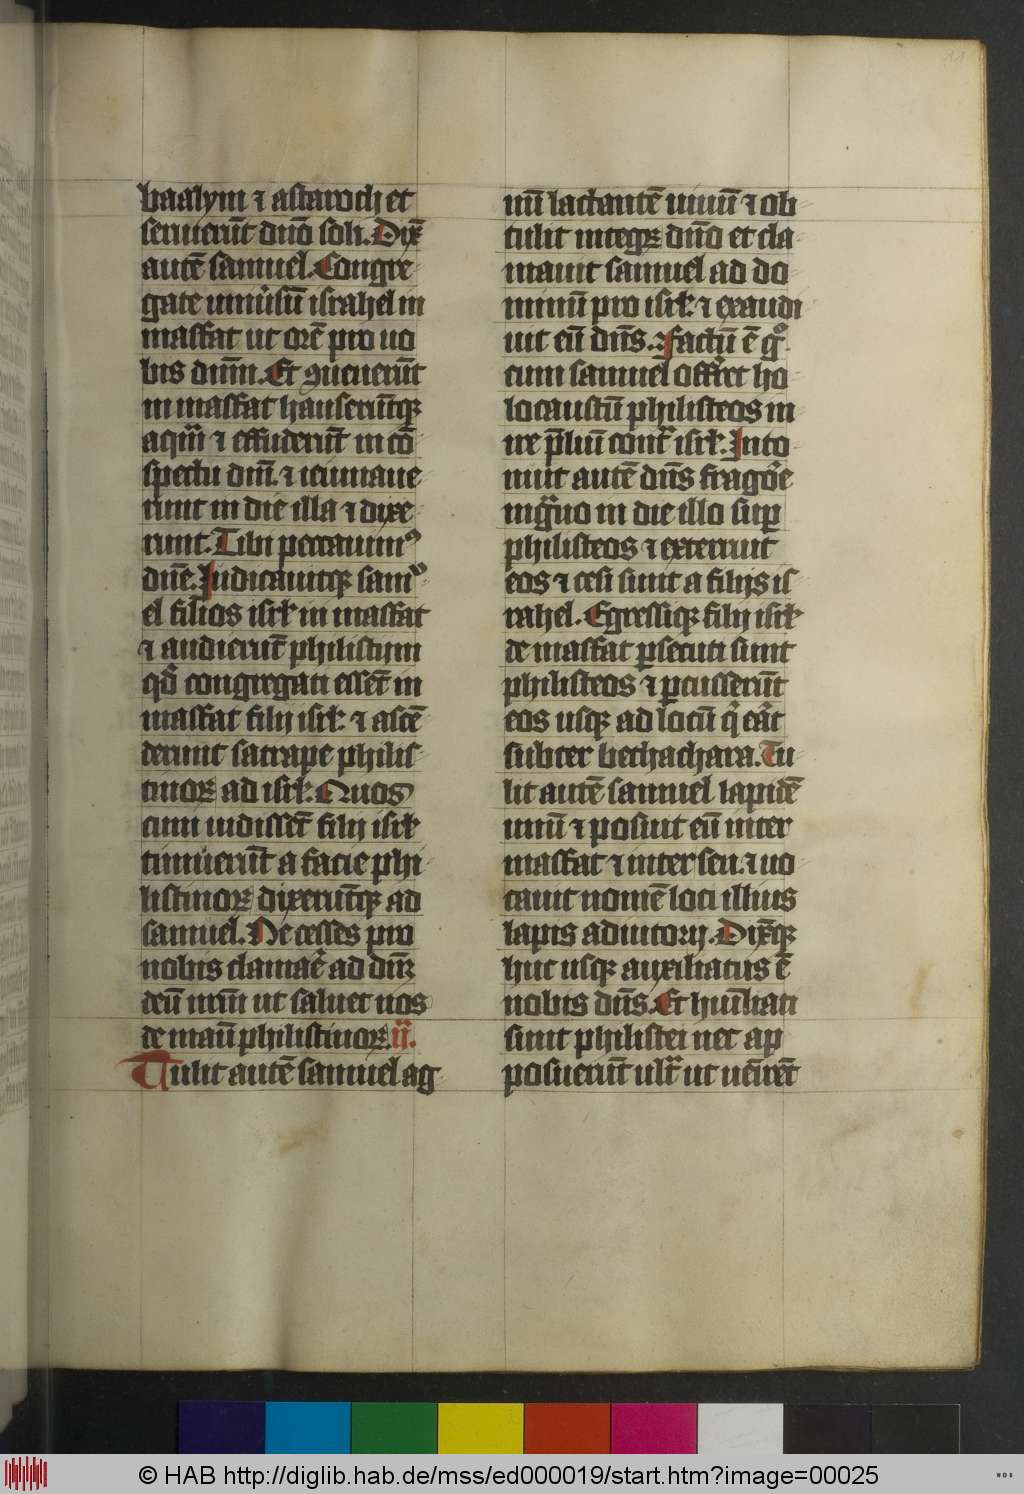 baalym ⁊ astaroth et
seruierūt dn̄o soli. Dix̄
autē samuel. Congre
gate uniu̇sū israhel in
masfat ut orē pro uo
bis dnm̄. Et ꝯuenerūt
in masfat hauserūtqꝫ
aqm̄ ⁊ effuderūt in cō
spectu dnī. ⁊ ieiunaue
runt in die illa ⁊ dixe
runt. Tibi peccauimꝰ
dn̄e. Iudicauitqꝫ samu
el filios isrł in masfat
⁊ audierūt philistijm
qd̄ congregati essēt in
masfat filij isrł. ⁊ ascē
derunt satrape philis
tinoꝝ ad isrł. Quos
cum audissēt filij isrł
timuerūt a facie phi
listinoꝝ dixerūtqꝫ ad
samuel. Ne cesses pro
nobis clamaē ad dn̄ꝫ
deū nrm̄ ut saluet nos
de manū philistinoꝝ. ij.
Tulit autē samuel ag
nū lactantē unum̄ ⁊ ob
tulit integꝝ dn̄o et cla
mauit samuel ad do
minū pro isrł. ⁊ exaudi
uit eū dn̄s. Factū ē g̊
cum samuel offerret ho
locaustū philisteos in
ire p̄lium contᷓ isrł. Into
nuit autē dn̄s fragōe
mag̊no in die illo suꝑ
philisteos ⁊ exterruit
eos ⁊ cesi sunt a filijs is
rahel. Egressiqꝫ filij isrł
de masfat ꝑsecuti sunt
philisteos ⁊ ꝑcusserūt
eos usqꝫ ad locū q̇ eāt
subter bethachara. Tu
lit autē samuel lapidē
unū ⁊ posuit eū inter
masfat ⁊ inter sen. ⁊ uo
cauit nomē loci illius
lapis adiutorij. Dix̄qꝫ
huc usqꝫ auxiliatus ē
nobis dn̄s. Et hum̄liati
sunt philistei nec ap
posuerūt ult̄ ut uēirēt
11
© HAB http://diglib.hab.de/mss/ed000019/start.htm?image=00025